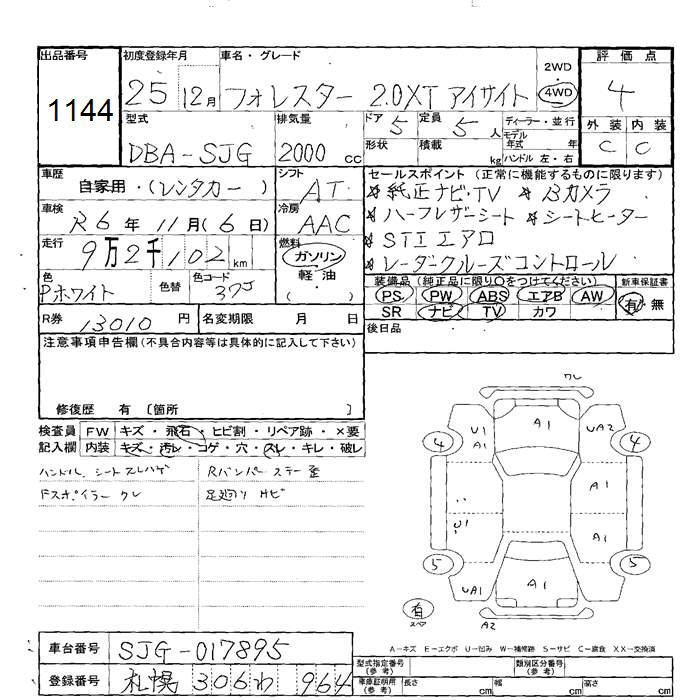 出品番号 1144
初度登録年月 25 12月
車名・グレード フォレスター 2.0XT アイサイト
2WD
4WD
評価点 4
外装 内装
C C
型式 DBA-SJG
排気量 2000 cc
ドア 5
定員 5 人
ディーラー・並行
モデル年式 年
形状
積載 kg
ハンドル 左・右
車歴 自家用・(レンタカー)
シフト AT
車検 R6年 11月(6日)
冷房 AAC
走行 9万2千102km
燃料 ガソリン・軽油
( )
色 Pホワイト
色替
色コード 37J
セールスポイント (正常に機能するものに限ります)
* 純正ナビ・TV * Bカメラ
* ハーフレザーシート * シートヒーター
* STI エアロ
* レーダークルーズコントロール
装備品(純正品に限り○をつけてください)
PS PW ABS エアB AW
SR ナビ TV カワ
新車保証書 有・無
R券 13010円
名変期限 月 日
後日品
注意事項申告欄(不具合内容等は具体的に記入して下さい)
修復歴 有 〔箇所 〕
検査員記入欄
FW キズ・飛石・ヒビ割・リペア跡・×要
内装 キズ・汚レ・コゲ・穴・スレ・キレ・破レ
ハンドル、シートスレハゲ Rバンパーステー歪
Fスポイラー ワレ 足廻り サビ
ワレ
U1 A1 A1 UA2
4 4
A1
U1 A1
5 5
UA1 A1 A1
有 スペア
A2
A-キズ E-エクボ U-凹み W-補修跡 S-サビ C-腐食 XX-交換済
車台番号 SJG-017895
登録番号 札幌 306 わ 964
型式指定番号(参考)
類別区分番号(参考)
車庫証明用(参考) 長さ cm 幅 cm 高さ cm